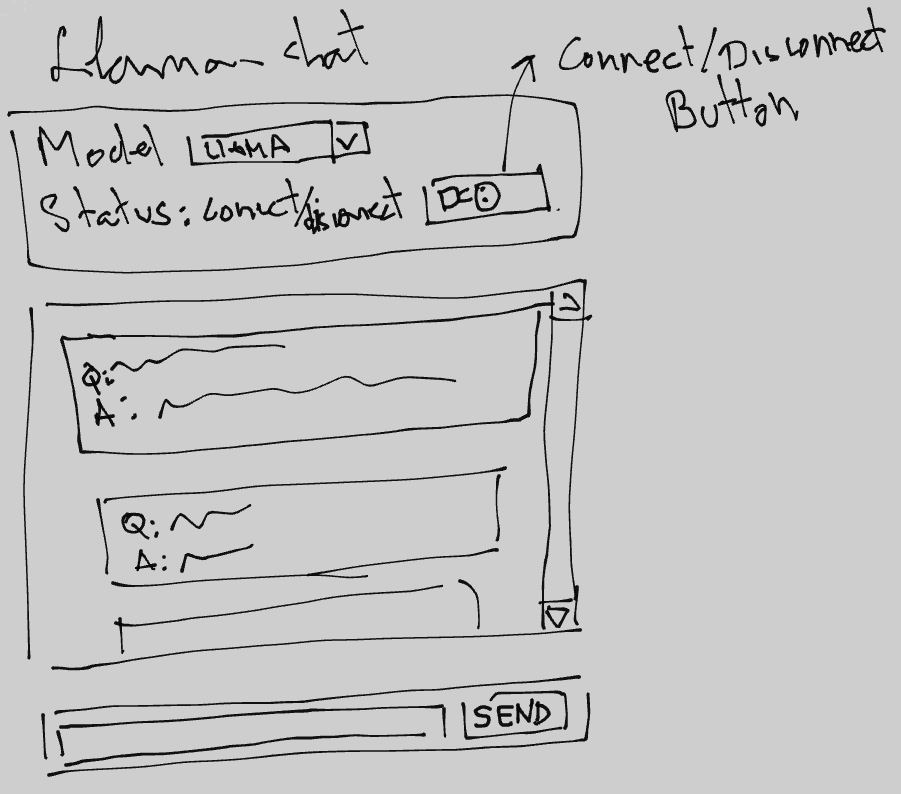 Llama-chat
Connect/Disconnect
Button
Model
Status: connect/disconnect
Q:
A:
Q:
A:
SEND